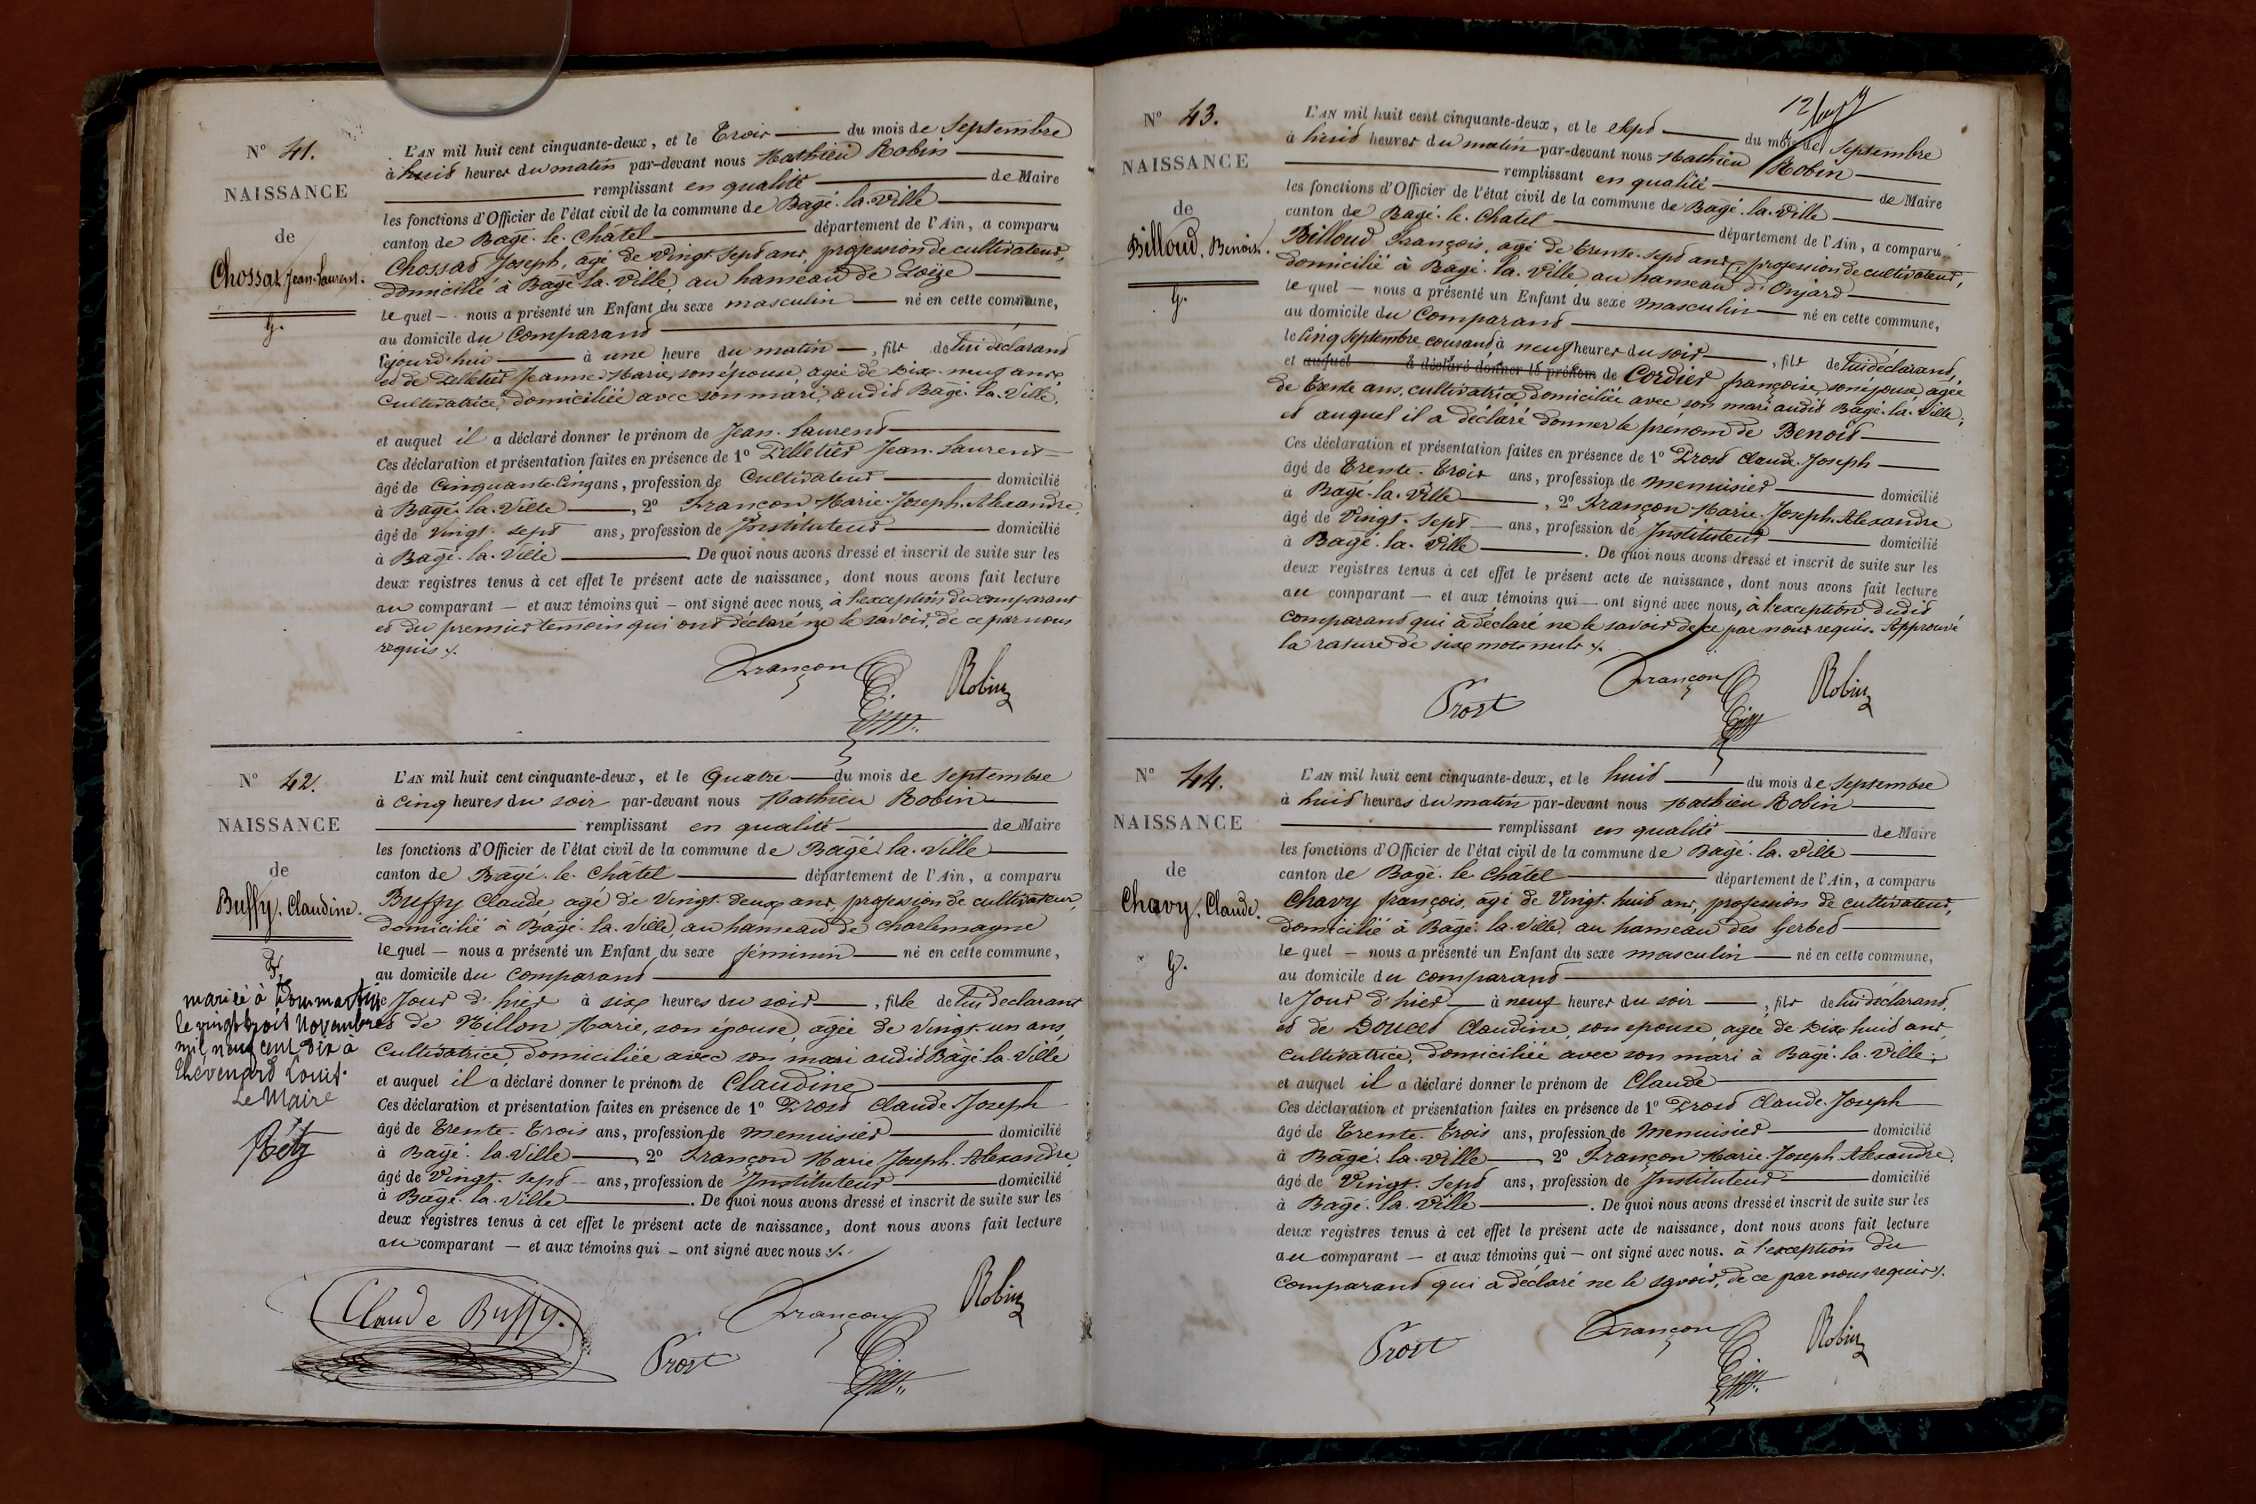 N° 41.
NAISSANCE
de
Chossat Jean-Laurent.
G.
L'AN mil huit cent cinquante-deux, et le Trois du mois de Septembre
à huit heures du matin par-devant nous Mathieu Robin
remplissant en qualité de Maire
les fonctions d'Officier de l'état civil de la commune de Bagé-la-Ville
canton de Bagé-le-Châtel département de l'Ain, a comparu
Chossat Joseph, agé de Vingt-sept ans, profession de cultivateur,
domicilié à Bagé-la-Ville, au hameau de Loëze
lequel nous a présenté un Enfant du sexe masculin né en cette commune,
au domicile du Comparant
aujourd'hui à une heure du matin, fils de lui déclarant
et de Pelletier Jeanne Marie, son épouse, agée de Dix-neuf ans,
Cultivatrice, domiciliée avec son mari, audit Bagé-la-Ville,
et auquel il a déclaré donner le prénom de Jean-Laurent
Ces déclaration et présentation faites en présence de 1° Pelletier Jean-Laurent
âgé de Cinquante-Cinq ans, profession de Cultivateur domicilié
à Bagé-la-Ville, 2° Françon Marie-Joseph-Alexandre,
âgé de Vingt-sept ans, profession de Instituteur domicilié
à Bagé-la-Ville De quoi nous avons dressé et inscrit de suite sur les
deux registres tenus à cet effet le présent acte de naissance, dont nous avons fait lecture
au comparant — et aux témoins qui — ont signé avec nous, à l'exception du comparant
et du premier temoin qui ont déclaré ne le savoir, de ce par nous
requis ./.
Françon Robin
N° 42.
NAISSANCE
de
Buffy, Claudine.
F.
mariée à Dommartin
le vingt trois Novembre
mil neuf cent dix à
Thevenard Louis.
Le Maire
Réty
L'AN mil huit cent cinquante-deux, et le Quatre du mois de Septembre
à Cinq heures du soir par-devant nous Mathieu Robin
remplissant en qualité de Maire
les fonctions d'Officier de l'état civil de la commune de Bagé-la-Ville
canton de Bagé-le-Châtel département de l'Ain, a comparu
Buffy Claude agé de Vingt-deux ans, profession de cultivateur,
domicilié à Bagé-la-Ville, au hameau de Charlemagne
lequel — nous a présenté un Enfant du sexe féminin né en cette commune,
au domicile du Comparant
le Jour d'hier à six heures du soir, fille de lui déclarant
et de Millon, Marie, son épouse, agée de Vingt-un ans,
Cultivatrice, domiciliée avec son mari audit Bagé-la-Ville
et auquel il a déclaré donner le prénom de Claudine
Ces déclaration et présentation faites en présence de 1° Prost Claude-Joseph
âgé de Trente-Trois ans, profession de Menuisier domicilié
à Bagé-la-Ville, 2° Françon Marie-Joseph-Alexandre,
âgé de Vingt-sept ans, profession de Instituteur domicilié
à Bagé-la-Ville. De quoi nous avons dressé et inscrit de suite sur les
deux registres tenus à cet effet le présent acte de naissance, dont nous avons fait lecture
au comparant — et aux témoins qui — ont signé avec nous ./.
Claude Buffy. Prost Françon Robin
N° 43.
NAISSANCE
de
Billoud, Benoist.
G.
L'AN mil huit cent cinquante-deux, et le Sept du mois de Septembre
à huit heures du matin par-devant nous Mathieu Robin
remplissant en qualité de Maire
les fonctions d'Officier de l'état civil de la commune de Bagé-la-Ville
canton de Bagé-le-Châtel département de l'Ain, a comparu
Billoud François, agé de Trente-sept ans, profession de cultivateur,
domicilié à Bagé-la-Ville, au hameau d'Onjard
lequel — nous a présenté un Enfant du sexe masculin né en cette commune,
au domicile du Comparant
le Cinq Septembre, courant à neuf heures du soir, fils de lui déclarant,
et auquel a déclaré donner le prénom de Cordier françoise, son épouse, agée
de Trente ans, cultivatrice, domiciliée avec son mari audit Bagé-la-Ville,
et auquel il a déclaré donner le prénom de Benoit
Ces déclaration et présentation faites en présence de 1° Prost Claude-Joseph
âgé de Trente-Trois ans, profession de Menuisier domicilié
à Bagé-la-Ville, 2° Françon Marie-Joseph-Alexandre
âgé de Vingt-sept ans, profession de Instituteur domicilié
à Bagé-la-Ville. De quoi nous avons dressé et inscrit de suite sur les
deux registres tenus à cet effet le présent acte de naissance, dont nous avons fait lecture
au comparant — et aux témoins qui — ont signé avec nous, à l'exception dudit
comparant qui a déclaré ne le savoir de ce par nous requis. Approuvé
la rature de six mots nuls ./.
Prost Françon Robin
N° 44.
NAISSANCE
de
Chavy, Claude.
G.
L'AN mil huit cent cinquante-deux, et le huit du mois de Septembre
à huit heures du matin par-devant nous Mathieu Robin
remplissant en qualité de Maire
les fonctions d'Officier de l'état civil de la commune de Bagé-la-Ville
canton de Bagé-le-Châtel département de l'Ain, a comparu
Chavy françois, agé de Vingt-huit ans, profession de cultivateur,
domicilié à Bagé-la-Ville, au hameau des Gerbes
lequel — nous a présenté un Enfant du sexe masculin né en cette commune,
au domicile du comparant
le Jour d'hier à neuf heures du soir, fils de lui déclarant,
et de Doucet Claudine, son épouse, agée de Dix-huit ans,
cultivatrice, domiciliée avec son mari à Bagé-la-Ville,
et auquel il a déclaré donner le prénom de Claude
Ces déclaration et présentation faites en présence de 1° Prost Claude-Joseph
âgé de Trente-Trois ans, profession de Menuisier domicilié
à Bagé-la-Ville, 2° Françon Marie-Joseph-Alexandre,
âgé de Vingt-Sept ans, profession de Instituteur domicilié
à Bagé-la-Ville. De quoi nous avons dressé et inscrit de suite sur les
deux registres tenus à cet effet le présent acte de naissance, dont nous avons fait lecture
au comparant — et aux témoins qui — ont signé avec nous. à l'exception du
comparant qui a déclaré ne le savoir, de ce par nous requis ./.
Prost Françon Robin